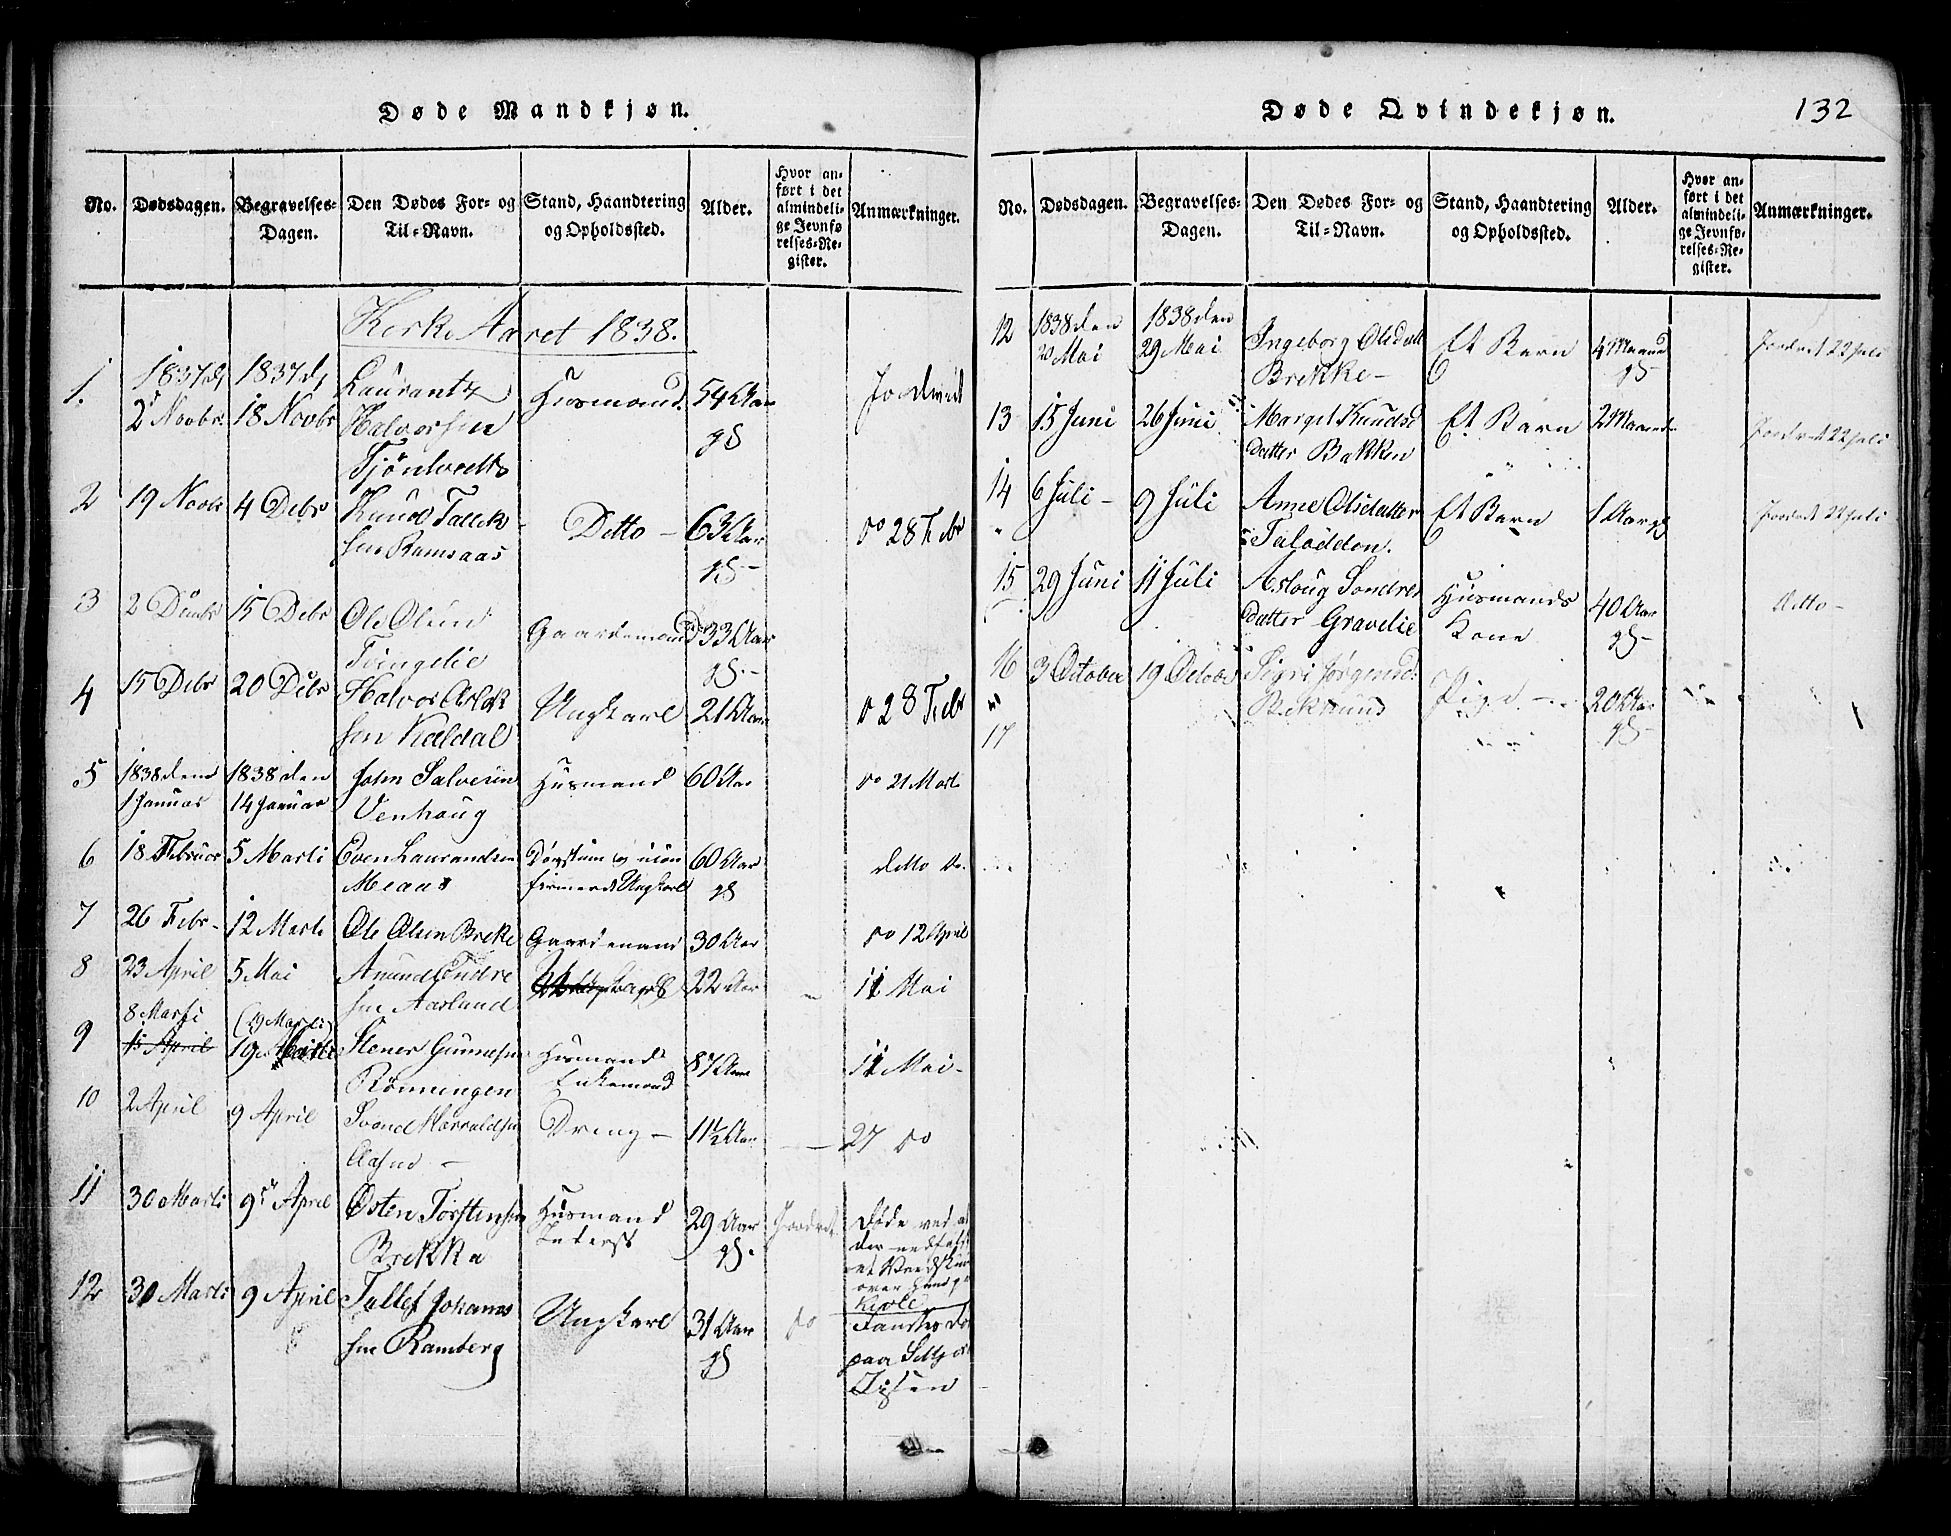 Døde Mandkjøn.
No. Dødsdagen. Begravelses-Dagen. Den Dødes For- og Til-Navn. Stand, Haandtering og Opholdssted. Alder. Hvor anført i det almindelige Jevnførelses-Register. Anmærkninger.
Kirke Aaret 1838.
1. 1837 d. 2 Novbr 1837 d. 18 Novbr Laurantz Halvorsen Tjöntvedt Husmand 54 Aar gl Jordved
2 19 Novbr 4 Debr Knud Tallek- sen Ramsaas Ditto - 63 Aar gl - do 28 Febr
3 2 15 Debr Ole Olsen Tvingelie Gaardemand 33 Aar gl. -
4 15 Debr 20 Debr Halvor Aslak sen Kaldal Ungkarl 21 Aar do 28 Febr
5 1838 den 1 Januar 1838 den 14 Januar John Salvesen Venhaug Husmand 60 Aar do 21 Mart
6 18 Februar 5 Marti Even Laurandsen Meaas Ungkarl 60 Aar gl ditto do.
7 26 Febr - 12 Marti Ole Olsen Breke Gaardemand 30 Aar do 12 April
8 23 April 5 Mai Amund Sendre sen Aasland 22 Aar 11 Mai
9 8 Marti 15 April (19 Marti) 19 Stener Gunnesen Rønningen Husmand Enkemand 87 Aar 11 Mai -
10 2 April 9 April Svend Harraldsen Aasne - Dreng - 11½ Aar - 27 do
11 30 Marti 9 April Østen Torstensen Brekka Husmand Inderst 29 Aar gl. Jordved Døde ved at over
12 30 Marti 9 April Tallef Johans sen Ramberg Ungkarl 31 Aar gl do Fandtes død paa Isen
Døde Qvindekjøn.
132
No. Dødsdagen. Begravelses-Dagen. Den Dødes For- og Til-Navn. Stand, Haandtering og Opholdssted. Alder. Hvor anført i det almindelige Jevnførelses-Register. Anmærkninger.
12 1838 den 20 Mai 1838 den 29 Mai Ingeborg Olsdatt Brekke - Et Barn 4 Maaned gl Jordvedt 22 Juli
13 15 Juni 26 Juni Margit Knuds datter Bakken Et Barn 2 Maaned Jordvedt 22 Juli
14 6 Juli - 9 Juli Anne Olsdatter Taloddon. Et Barn 1 Aar gl Jordvedt 22 Juli
15 29 Juni 11 Juli Aslaug Sondre datter Gravelie Husmands Kone 40 Aar gl - ditto -
16 3 October 19 October Sigri Jørgensd: Bekkhuus Pige - 20 Aar gl -
17